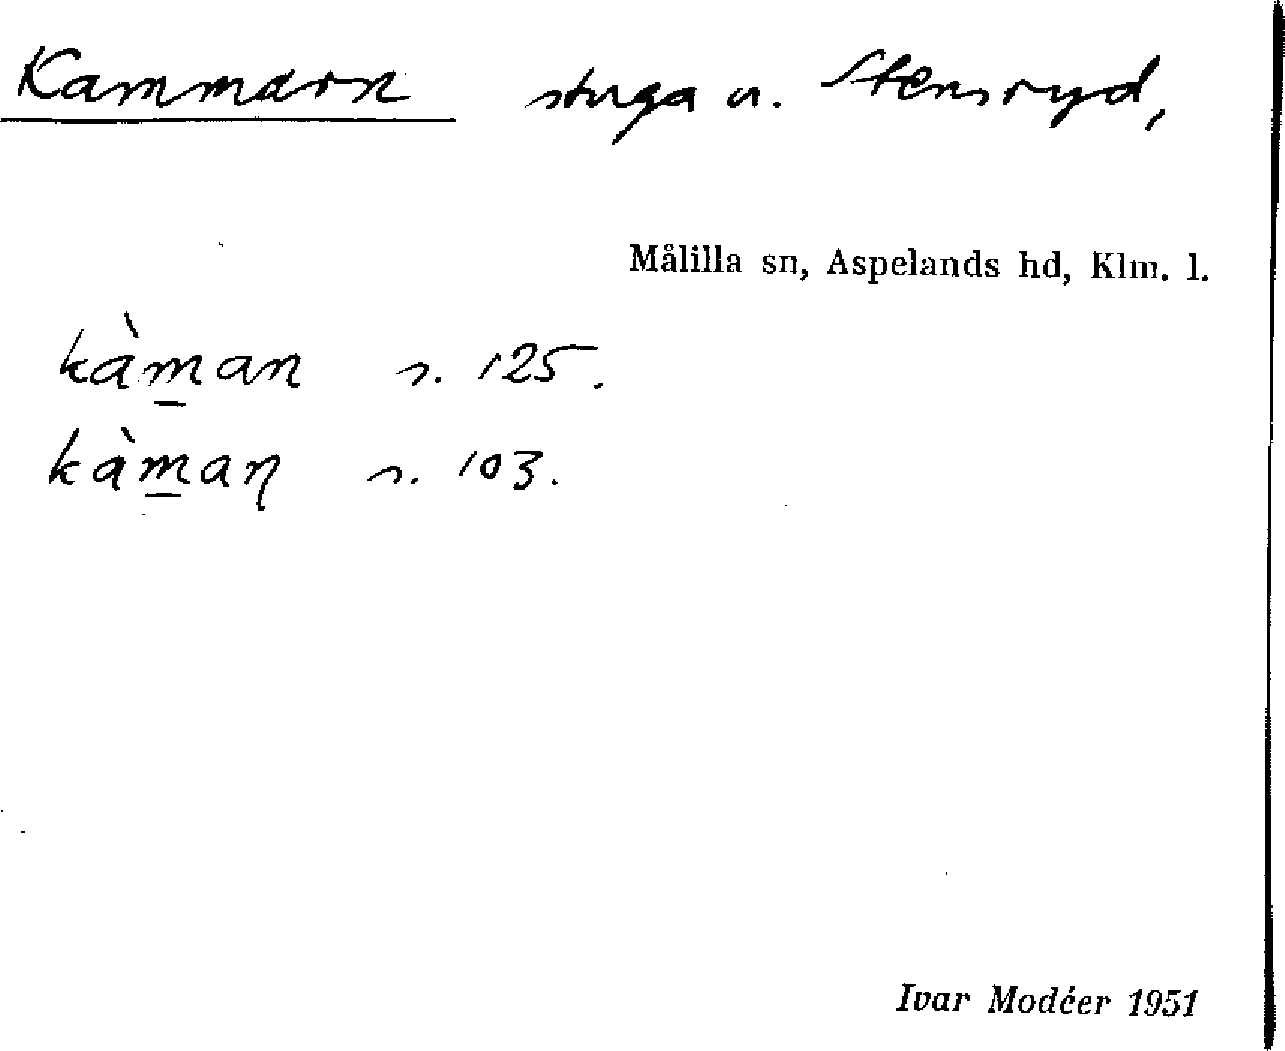 Kammarn stuga u. Stensryd,
Målilla sn, Aspelands hd, Klm. l.
kàm̲an s. 125.
kàm̲aɳ s. 103.
Ivar Modéer 1951